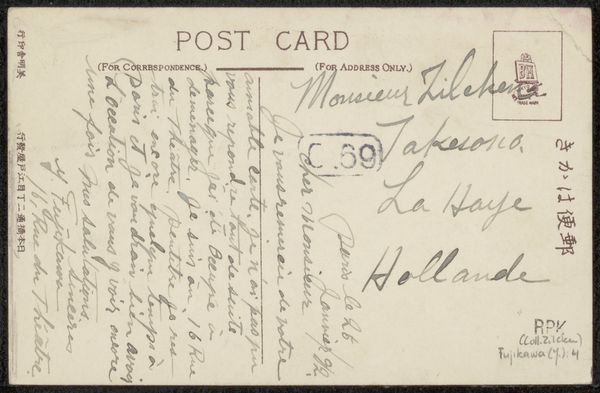 POST CARD
(FOR CORRESPONDENCE.)
(FOR ADDRESS ONLY.)
Monsieur Zilcken
La Haye
Hollande
C.69
Paris le 26
Janvier
Cher Monsieur
Je vous remercie de votre
aimable carte. Je n'ai pas pu
vous repondre tout de suite
parceque j'ai été occupé à
demenager. Je suis au 16 Rue
du Théâtre. Peutêtre je res-
terai encore quelque temps à
Paris et je voudrai bien avoir
l'occasion de vous y voir encore
une fois. Mes salutations
sinceres
Y Fujikawa
16, Rue du Théâtre.
きかは便郵
TRADE MARK
RPK
(Coll. Zilcken)
Fujikawa (Y.): 4